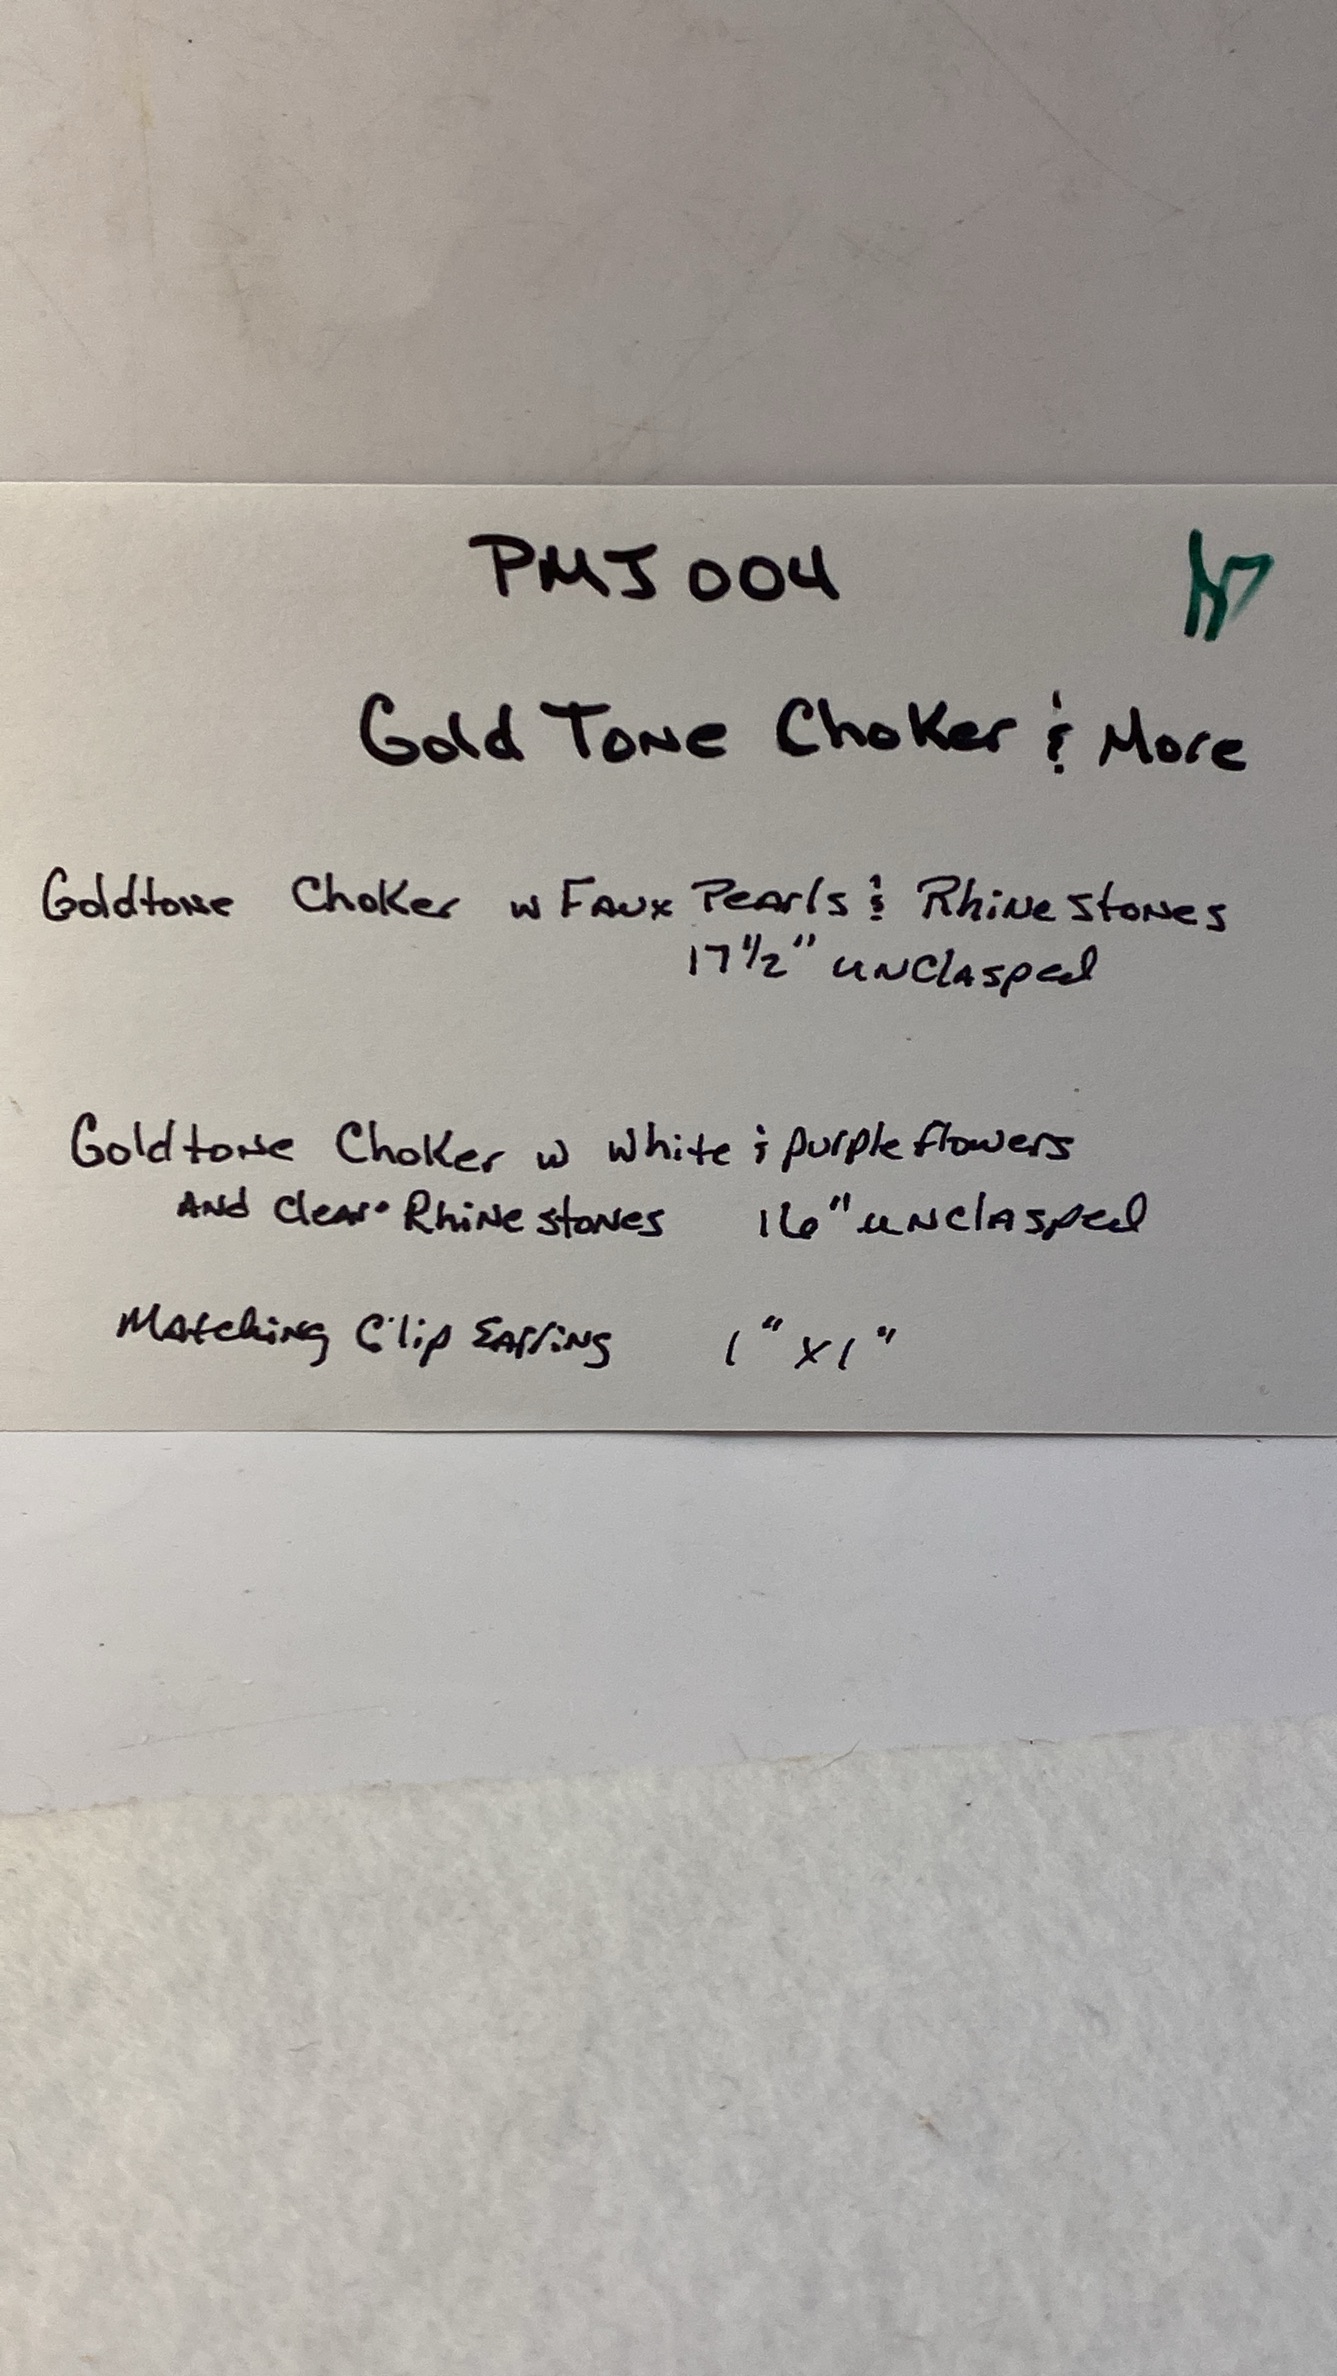 PMJ 004
Gold Tone Choker & More
Goldtone Choker w Faux Pearls & Rhinestones
17 1/2" unclasped
Goldtone Choker w white & purple flowers
And Clear Rhinestones 16" unclasped
Matching Clip Earring 1" x 1"